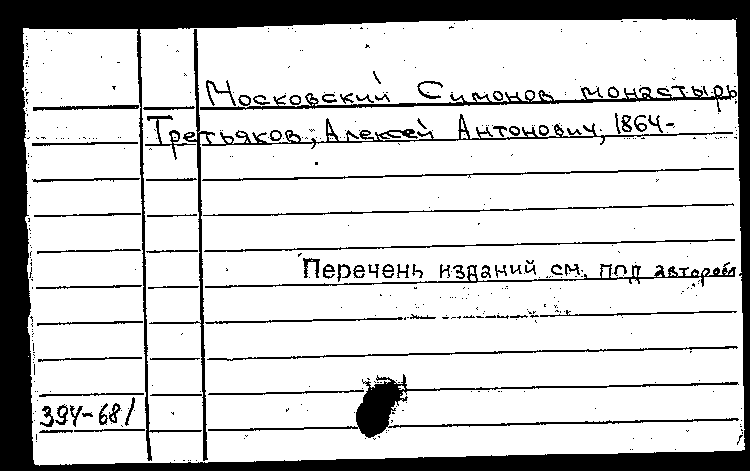 Московский Симонов монастырь
Третьяков, Алексей Антонович, 1864-
Перечень изданий см. под
394-68/